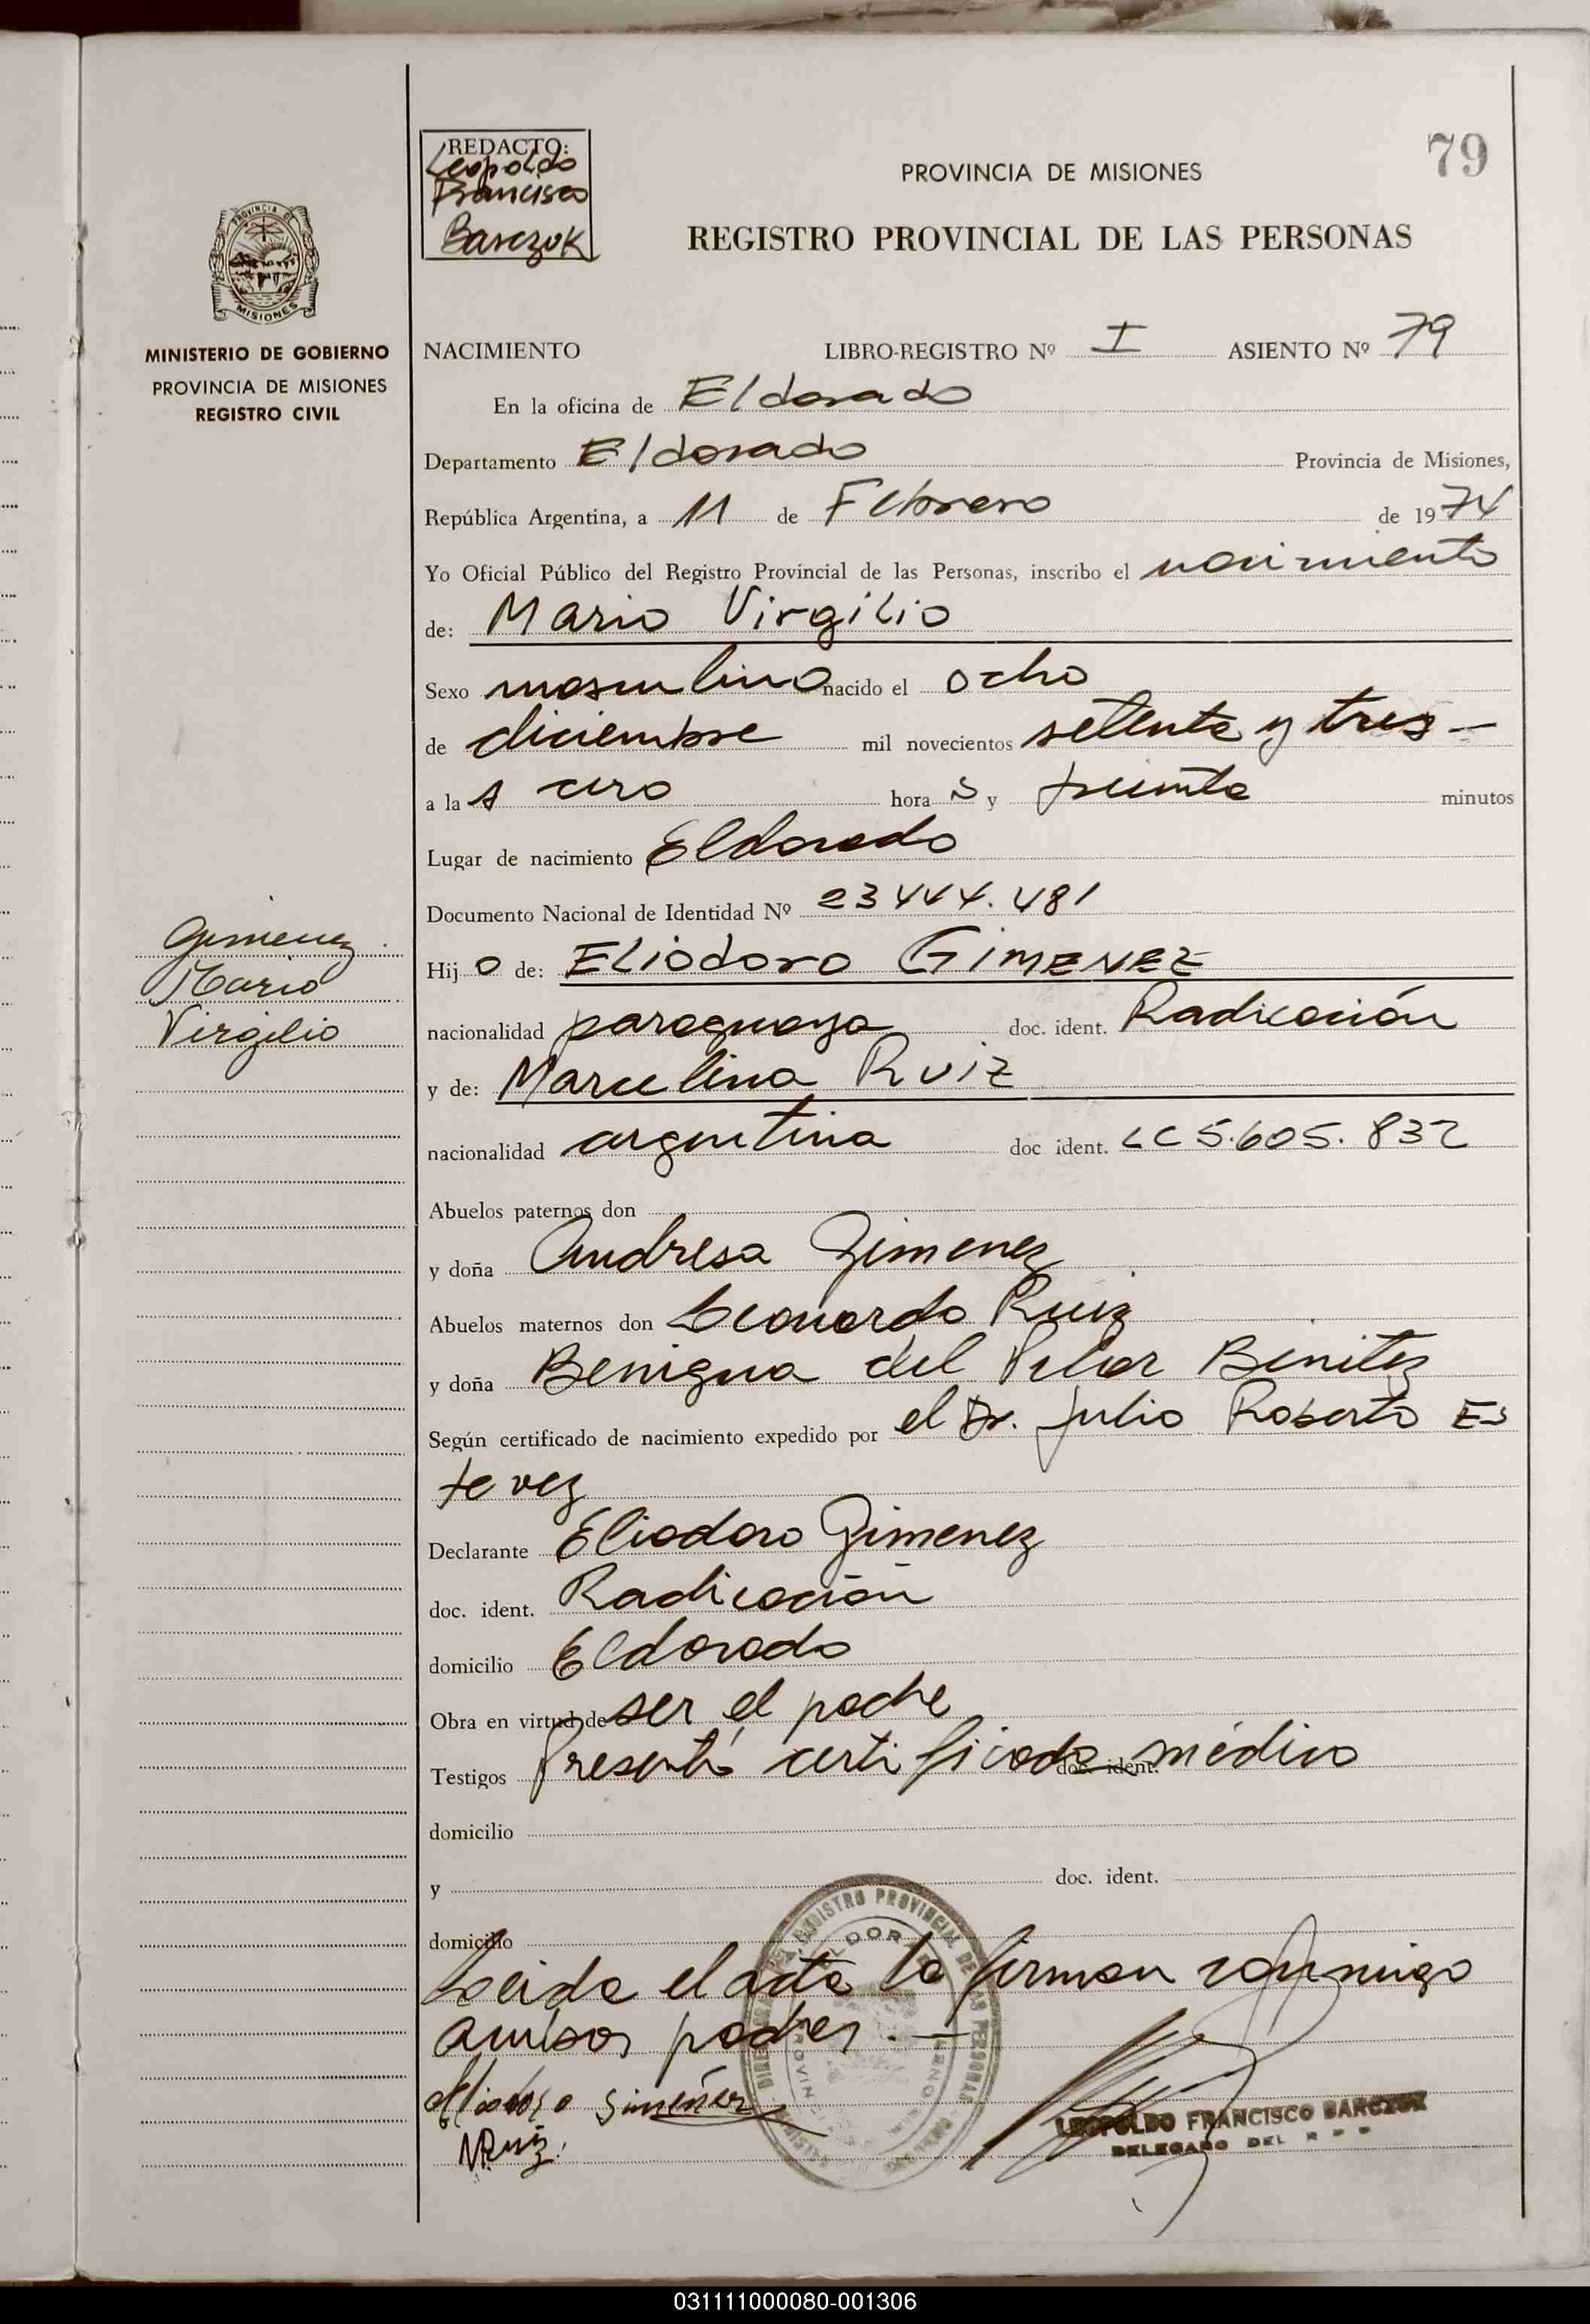 79
REDACTO:
Leopoldo
Francisco
Barczuk
PROVINCIA DE MISIONES
REGISTRO PROVINCIAL DE LAS PERSONAS
MISIONES
MINISTERIO DE GOBIERNO
PROVINCIA DE MISIONES
REGISTRO CIVIL
NACIMIENTO LIBRO-REGISTRO Nº I ASIENTO Nº 79
En la oficina de Eldorado
Departamento Eldorado Provincia de Misiones,
República Argentina, a 11 de Febrero de 1974
Yo Oficial Público del Registro Provincial de las Personas, inscribo el nacimiento
de: Mario Virgilio
Sexo masculino nacido el ocho
de diciembre mil novecientos setenta y tres -
a las cero horas y treinta minutos
Lugar de nacimiento Eldorado
Documento Nacional de Identidad Nº 23444.481
Gimenez
Mario
Virgilio
Hijo de: ELIODORO GIMENEZ
nacionalidad paraguaya doc. ident. Radicación
y de: Marcelina Ruiz
nacionalidad argentina doc ident. LC 5.605.832
Abuelos paternos don
y doña Andresa Gimenez
Abuelos maternos don Leonardo Ruiz
y doña Benigna del Pilar Benitez
Según certificado de nacimiento expedido por el Dr. Julio Roberto Es
tevez
Declarante Eliodoro Gimenez
doc. ident. Radicación
domicilio Eldorado
Obra en virtud de ser el padre
Testigos Presentó certificado médico doc. ident.
domicilio
y doc. ident.
domicilio
Leida el acta la firman conmigo
ambos padres. -
Eliodoro Gimenez
MRuiz.
LEOPOLDO FRANCISCO BARCZUK
DELEGADO DEL R P P
031111000080-001306